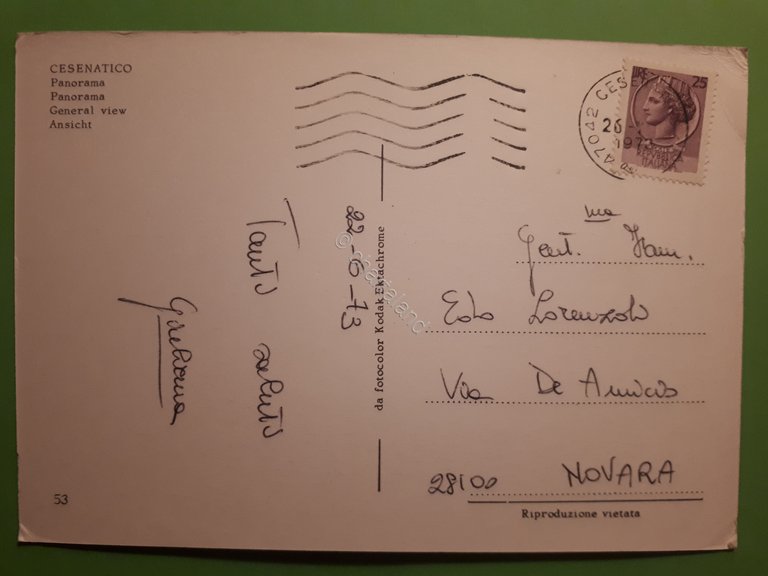 CESENATICO
Panorama
Panorama
General view
Ansicht
LIRE 25
REPVBBLICA
ITALIANA
47042 CES
26
197
22-6-73
Tanti saluti
da fotocolor Kodak Ektachrome
Gent.ma Fam.
Lorenzoli
Via De Amicis
28100 NOVARA
53
Riproduzione vietata